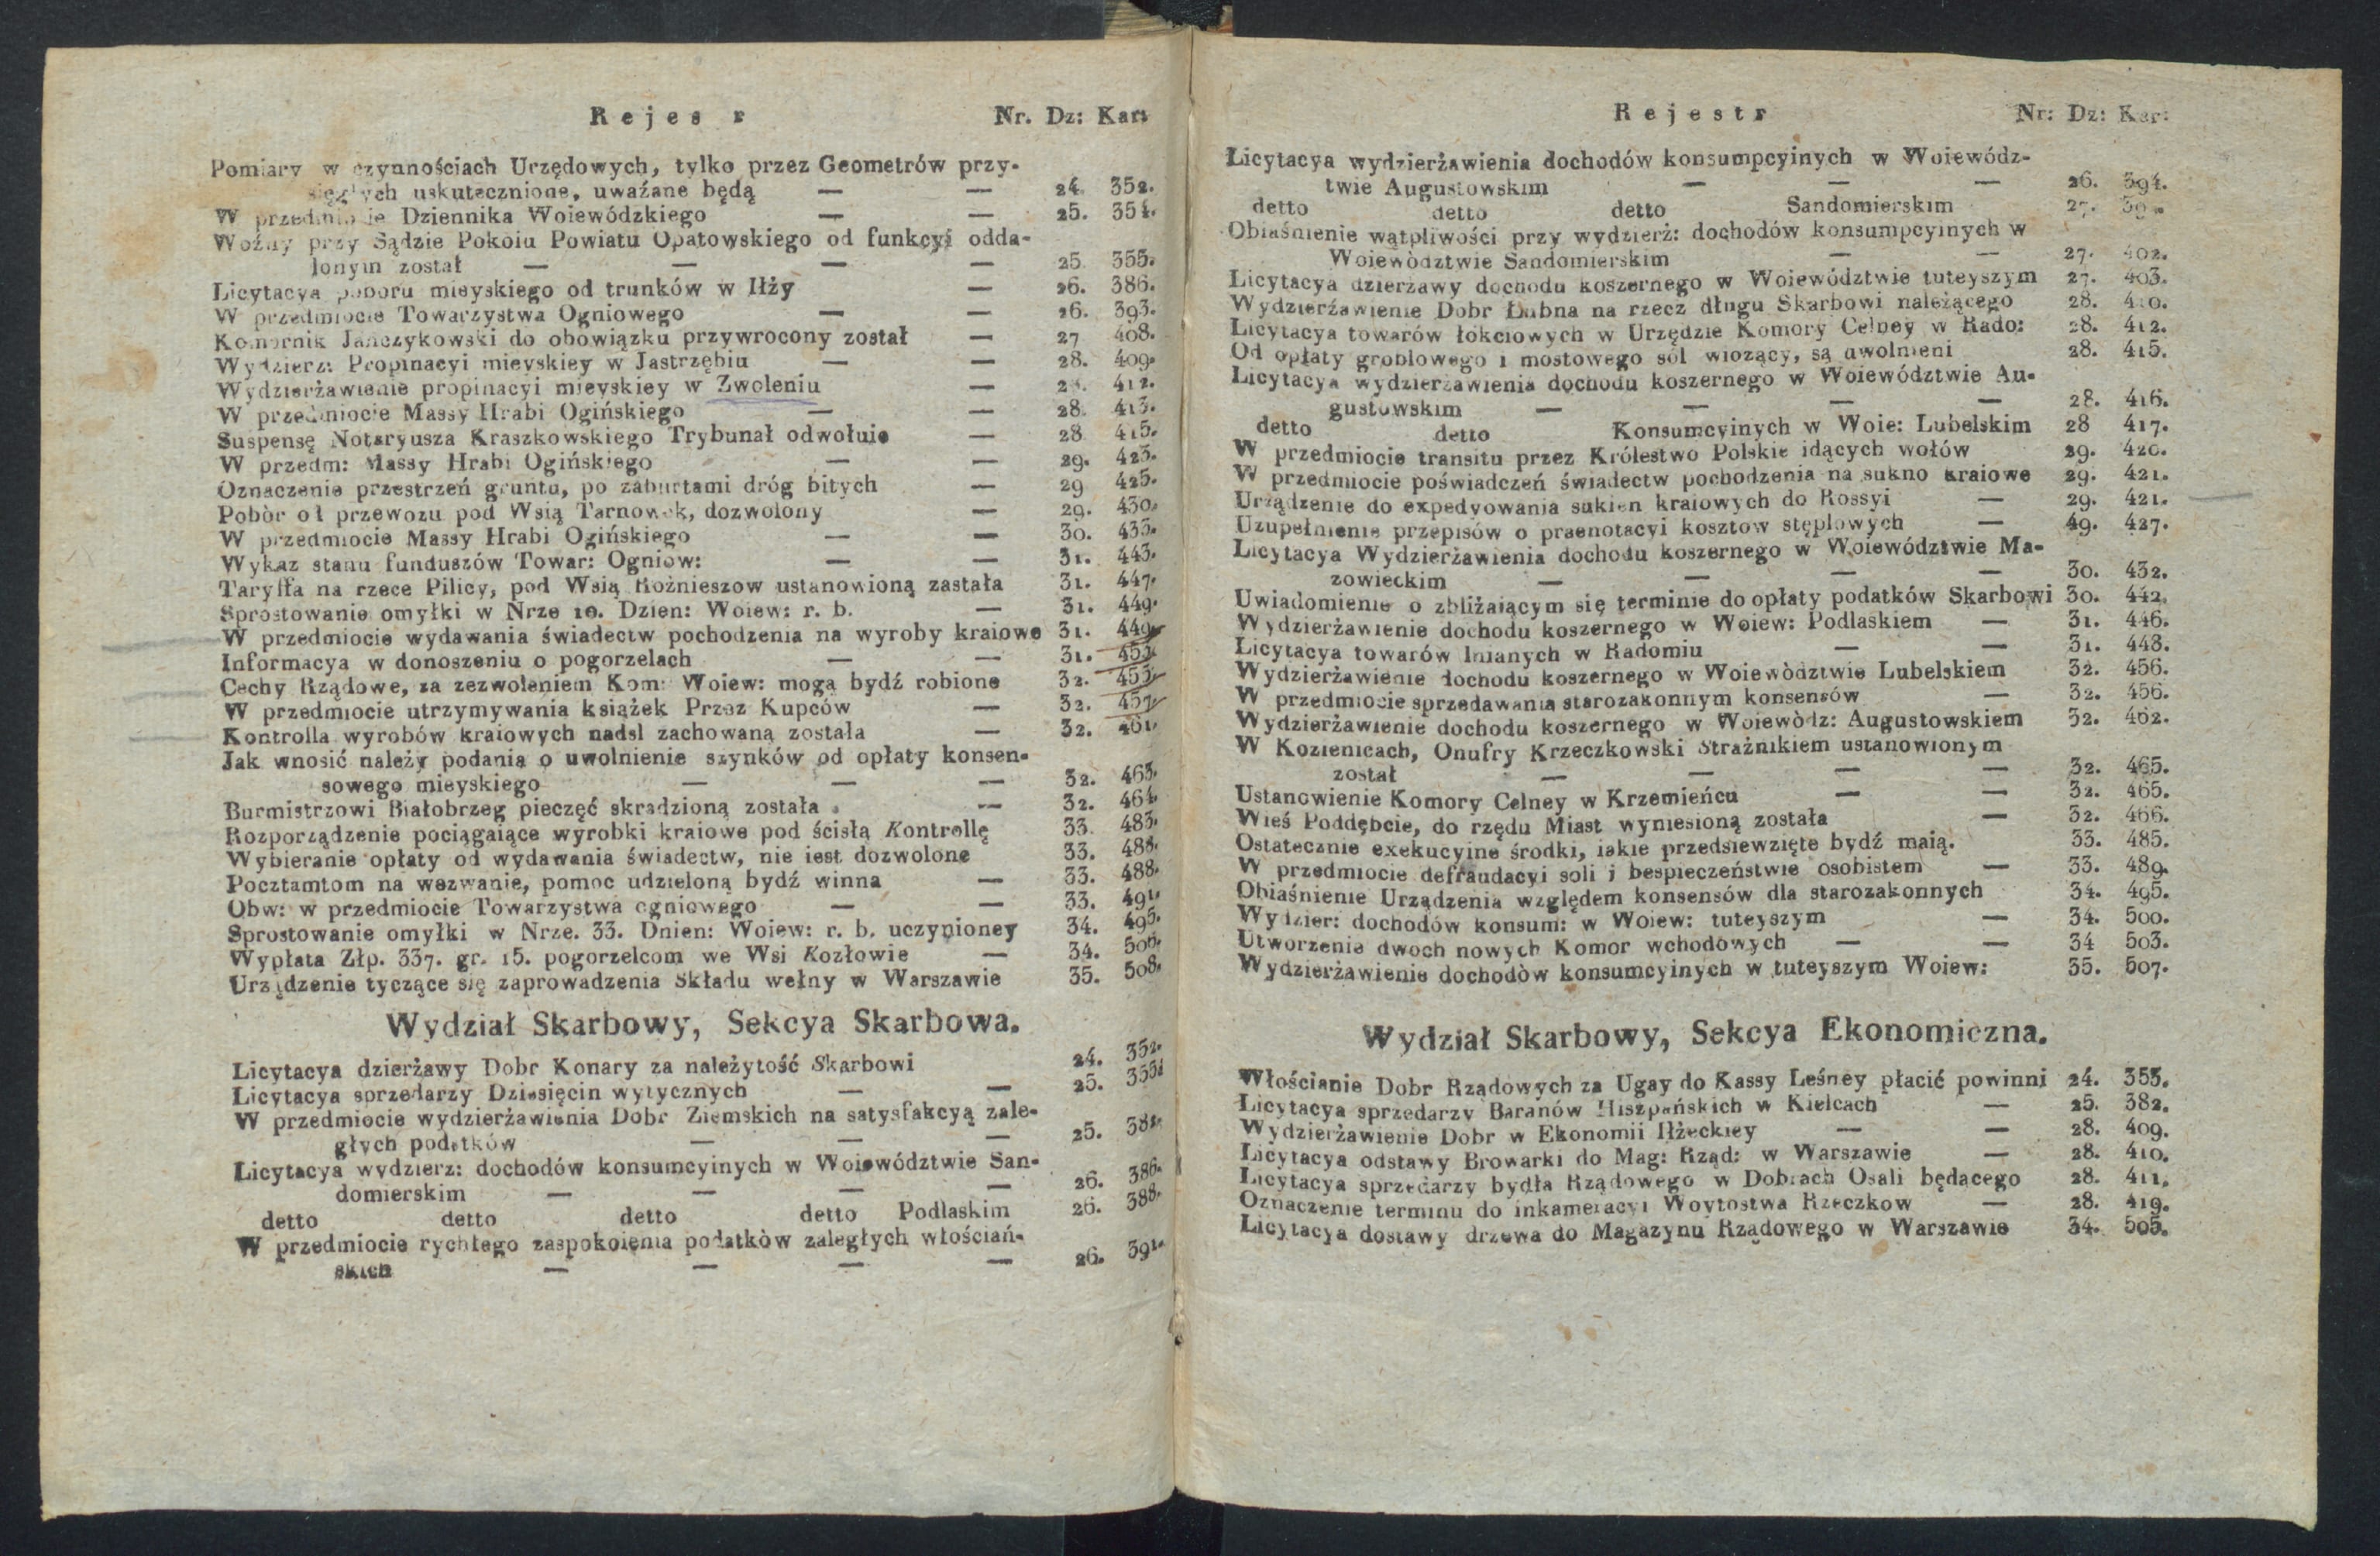 Rejes r Nr. Dz: Kar:
Pomiary w czynnościach Urzędowych, tylko przez Geometrów przy-
sięgłych uskutecznione, uważane będą — — 24. 352.
W przedmiocie Dziennika Woiewódzkiego — — 25. 354.
Woźny przy Sądzie Pokoiu Powiatu Opatowskiego od funkcyi odda-
lonym został — — — — 25. 355.
Licytacya poboru mieyskiego od trunków w Iłży — 26. 386.
W przedmiocie Towarzystwa Ogniowego — — 26. 393.
Komornik Janczykowski do obowiązku przywrocony został — 27 408.
Wydzierz: Propinacyi mieyskiey w Jastrzębiu — — 28. 409.
Wydzierżawienie propinacyi mieyskiey w Zwoleniu — 28. 412.
W przedmiocie Massy Hrabi Ogińskiego — — 28. 413.
Suspensę Notaryusza Kraszkowskiego Trybunał odwołuie — 28 415.
W przedm: Massy Hrabi Ogińskiego — — 29. 423.
Oznaczenie przestrzeń gruntu, po zaburtami dróg bitych — 29 425.
Pobòr od przewozu pod Wsią Tarnowek, dozwolony — 29. 430.
W przedmiocie Massy Hrabi Ogińskiego — — 30. 433.
Wykaz stanu funduszów Towar: Ogniow: — — 31. 443.
Taryffa na rzece Pilicy, pod Wsią Rożnieszow ustanowioną zastała 31. 447.
Sprostowanie omyłki w Nrze 10. Dzien: Woiew: r. b. — 31. 449.
W przedmiocie wydawania świadectw pochodzenia na wyroby kraiowe 31. 449.
Informacya w donoszeniu o pogorzelach — — 31. 453.
Cechy Rządowe, za zezwoleniem Kom: Woiew: mogą bydź robione 32. 455.
W przedmiocie utrzymywania książek Przez Kupców — 32. 457.
Kontrolla wyrobów kraiowych nadsl zachowaną została — 32. 461.
Jak wnosić należy podania o uwolnienie szynków od opłaty konsen-
sowego mieyskiego — — — 32. 463.
Burmistrzowi Białobrzeg pieczęć skradzioną została — 32. 464.
Rozporządzenie pociągaiące wyrobki kraiowe pod ścisłą Kontrollę 33. 483.
Wybieranie opłaty od wydawania świadectw, nie iest dozwolone 33. 488.
Pocztamtom na wezwanie, pomoc udzieloną bydź winna — 33. 488.
Obw: w przedmiocie Towarzystwa ogniowego — — 33. 491.
Sprostowanie omyłki w Nrze. 33. Dnien: Woiew: r. b. uczynioney 34. 495.
Wypłata Złp. 337. gr. 15. pogorzelcom we Wsi Kozłowie — 34. 506.
Urządzenie tyczące się zaprowadzenia Składu wełny w Warszawie 35. 508.
Wydział Skarbowy, Sekcya Skarbowa.
Licytacya dzierżawy Dobr Konary za należytość Skarbowi 24. 352.
Licytacya sprzedarzy Dziesięcin wytycznych — — 25. 355.
W przedmiocie wydzierżawienia Dobr Ziemskich na satysfakcyą zale-
głych podatków — — — 25. 382.
Licytacya wydzierz: dochodów konsumcyinych w Woiewództwie San-
domierskim — — — — 26. 386.
detto detto detto detto Podlaskim 26. 388.
W przedmiocie rychłego zaspokoienia podatkòw zaległych włościań-
skich — — — — 26. 391.
Rejestr Nr: Dz: Kar:
Licytacya wydzierżawienia dochodów konsumpcyinych w Woiewódz-
twie Augustowskim — — — 26. 394.
detto detto detto Sandomierskim 27.
Obiaśnienie wątpliwości przy wydzierż: dochodów konsumpcyinych w
Woiewòdztwie Sandomierskim — — 27. 402.
Licytacya dzierżawy dochodu koszernego w Woiewództwie tuteyszym 27. 403.
Wydzierżawienie Dobr Łubna na rzecz długu Skarbowi należącego 28. 410.
Licytacya towarów łokciowych w Urzędzie Komory Celney w Rado: 28. 412.
Od opłaty groblowego i mostowego sòl wiozący, są uwolnieni 28. 415.
Licytacya wydzierżawienia dochodu koszernego w Woiewództwie Au-
gustowskim — — — — 28. 416.
detto detto Konsumcyinych w Woie: Lubelskim 28 417.
W przedmiocie transitu przez Królestwo Polskie idących wołów 29. 420.
W przedmiocie poświadczeń świadectw pochodzenia na sukno kraiowe 29. 421.
Urządzenie do expedyowania sukien kraiowych do Rossyi — 29. 421.
Uzupełnienie przepisów o praenotacyi kosztow stęplowych — 49. 427.
Licytacya Wydzierżawienia dochodu koszernego w Woiewództwie Ma-
zowieckim — — — — 30. 432.
Uwiadomienie o zbliżaiącym się terminie do opłaty podatków Skarbowi 30. 442.
Wydzierżawienie dochodu koszernego w Woiew: Podlaskiem — 31. 446.
Licytacya towarów lnianych w Radomiu — — 31. 448.
Wydzierżawienie dochodu koszernego w Woiewòdztwie Lubelskiem 32. 456.
W przedmiocie sprzedawania starozakonnym konsensów — 32. 456.
Wydzierżawienie dochodu koszernego w Woiewòdz: Augustowskiem 32. 462.
W Kozienicach, Onufry Krzeczkowski Strażnikiem ustanowionym
został — — — — 32. 465.
Ustanowienie Komory Celney w Krzemieńcu — — 32. 465.
Wieś Poddębcie, do rzędu Miast wyniesioną została — 32. 466.
Ostatecznie exekucyine środki, iakie przedsiewzięte bydź maią. 33. 485.
W przedmiocie defraudacyi soli i bespieczeństwie osobistem — 33. 489.
Obiaśnienie Urządzenia względem konsensów dla starozakonnych 34. 495.
Wydzier: dochodów konsum: w Woiew: tuteyszym — 34. 500.
Utworzenie dwoch nowych Komor wchodowych — — 34 503.
Wydzierżawienie dochodòw konsumcyinych w tuteyszym Woiew: 35. 507.
Wydział Skarbowy, Sekcya Ekonomiczna.
Włościanie Dobr Rządowych za Ugay do Kassy Leśney płacić powinni 24. 353.
Licytacya sprzedarzy Baranów Hiszpańskich w Kielcach — 25. 382.
Wydzierżawienie Dobr w Ekonomii Iłżeckiey — — 28. 409.
Licytacya odstawy Browarki do Mag: Rząd: w Warszawie — 28. 410.
Licytacya sprzedarzy bydła Rządowego w Dobrach Osali będącego 28. 411.
Oznaczenie terminu do inkameracyi Woytostwa Rzeczkow — 28. 419.
Licytacya dostawy drzewa do Magazynu Rządowego w Warszawie 34. 505.